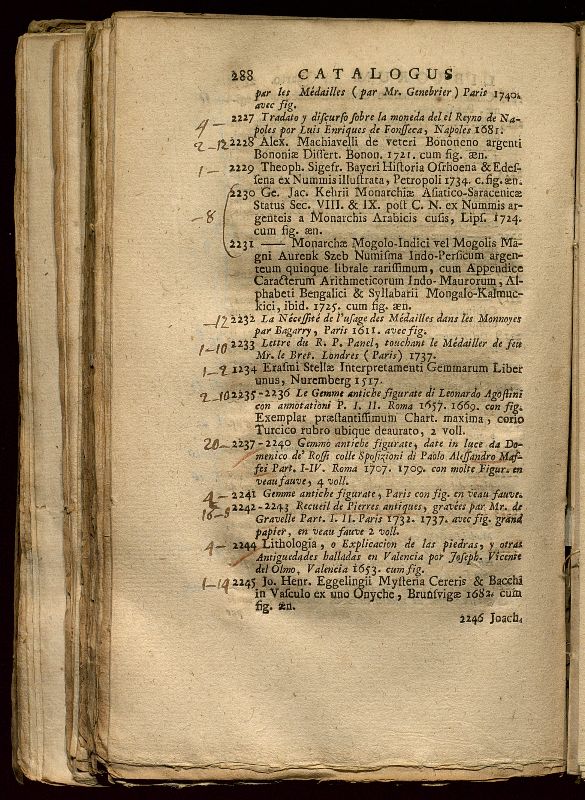 288 CATALOGUS
par les Médailles (par Mr. Genebrier) Paris 1740.
avec fig.
4 — 2227 Tratado y discurſo ſobre la moneda del el Reyno de Na-
poles por Luis Enriques de Fonſſeca, Napoles 1681.
2 - 12 2228 Alex. Machiavelli de veteri Bononeno argenti
Bononiæ Diſſert. Bonon. 1721. cum fig. æn.
1 — 2229 Theoph. Sigefr. Bayeri Hiſtoria Oſrhoena & Edeſ-
ſena ex Nummis illuſtrata, Petropoli 1734. c. fig. æn.
2230 Ge. Jac. Kehrii Monarchiæ Aſiatico-Saracenicæ
Status Sec. VIII. & IX. poſt C. N. ex Nummis ar-
— 8 genteis a Monarchis Arabicis cuſis, Lipſ. 1724.
cum fig. æn.
2231 —— Monarchæ Mogolo-Indici vel Mogolis Ma-
gni Aurenk Szeb Numiſma Indo-Perſicum argen-
teum quinque librale rariſſimum, cum Appendice
Caracterum Arithmeticorum Indo-Maurorum, Al-
phabeti Bengalici & Syllabarii Mongalo-Kalmuc-
kici, ibid. 1725. cum fig. æn.
— 12 2232 La Néceſſité de l'uſage des Médailles dans les Monnoyes
par Bagarry, Paris 1611. avec fig.
1 - 10 2233 Lettre du R. P. Panel, touchant le Médailler de feu
Mr. le Bret. Londres (Paris) 1737.
1234 Eraſmi Stellæ Interpretamenti Gemmarum Liber
unus, Nuremberg 1517.
2 - 10 2235-2236 Le Gemme antiche figurate di Leonardo Agoſtini
con annotationi P. I. II. Roma 1657. 1669. con fig.
Exemplar præſtantiſſimum Chart. maxima, corio
Turcico rubro ubique deaurato, 2 voll.
20 — 2237-2240 Gemmo antiche figurate, date in luce da Do-
menico de' Roſſi colle Spoſizioni di Paolo Aleſſandro Maf-
fei Part. I-IV. Roma 1707. 1709. con molte Figur. en
veau fauve, 4 voll.
4 — 2241 Gemme antiche figurate, Paris con fig. en veau fauve.
2242-2243 Recueil de Pierres antiques, gravées par Mr. de
Gravelle Part. I. II. Paris 1732. 1737. avec fig. grand
papier, en veau fauve 2 voll.
4 — 2244 Lithologia, o Explicacion de las piedras, y otras
Antiguedades halladas en Valencia por Joſeph. Vicente
del Olmo, Valencia 1653. cum fig.
1 - 14 2245 Jo. Henr. Eggelingii Myſteria Cereris & Bacchi
in Vaſculo ex uno Onyche, Brunſvigæ 1682. cum
fig. æn.
2246 Joach.